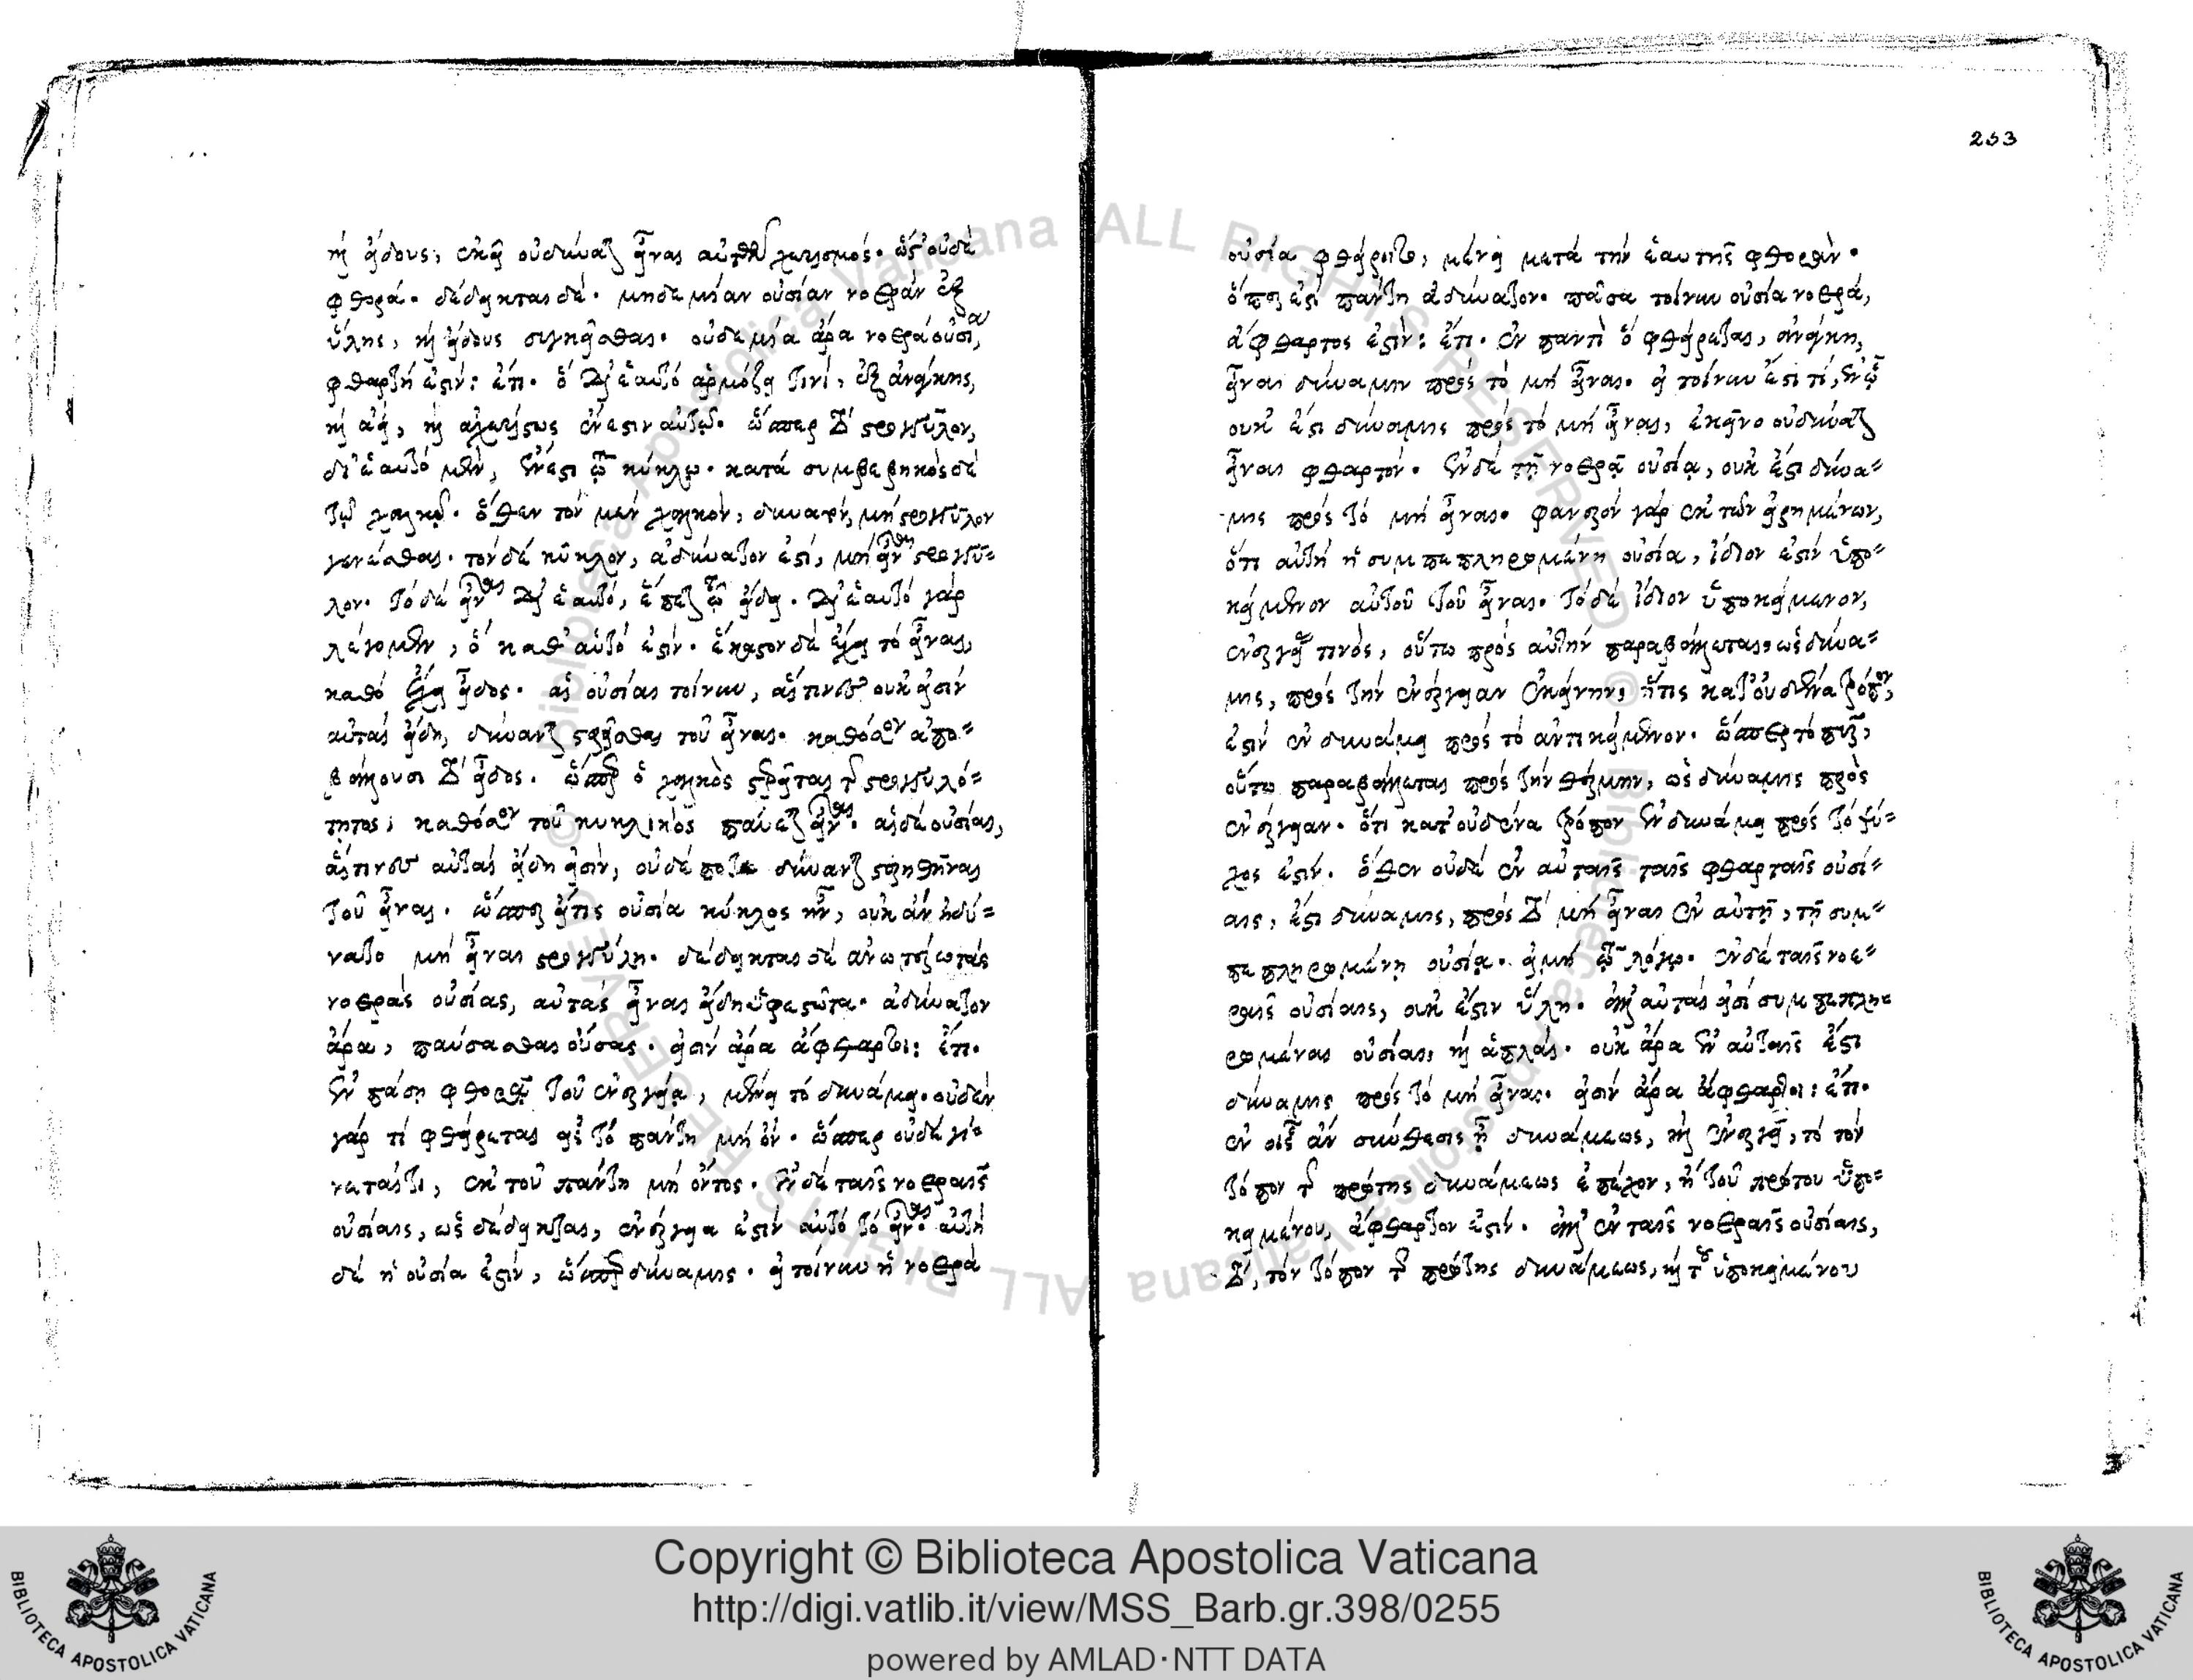 καὶ εἴδους, ἐκεῖ οὐ δύναται εἶναι αὐτῶν χωρισμός. ὥστ' οὐδὲ
φθορά. δέδεικται δέ. μηδεμίαν οὐσίαν νοερὰν ἐξ
ὕλης, καὶ εἴδους συγκεῖσθαι. οὐδεμία ἄρα νοερὰ οὐσία,
φθαρτή ἐστιν: ἔτι. ὃ δι' ἑαυτὸ ἁρμόζει τινί, ἐξ ἀνάγκης,
καὶ ἀεί, καὶ ἀχωρίστως ἔνεστιν αὐτῷ. ὥσπερ τὸ στρογγύλον,
δι' ἑαυτὸ μὲν, ἔνεστι τῷ κύκλῳ. κατὰ συμβεβηκὸς δὲ
τῷ χαλκῷ. ὅθεν τὸν μὲν χαλκὸν, δυνατὸν, μὴ στρογγύλον
γενέσθαι. τὸν δὲ κύκλον, ἀδύνατόν ἐστι, μὴ εἶναι στρογγύ=
λον. τὸ δὲ εἶναι δι' ἑαυτὸ, ἕπεται τῷ εἴδει. δι' ἑαυτὸ γὰρ
λέγομεν, ὃ καθ' αὑτό ἐστιν. ἕκαστον δὲ ἔχει τὸ εἶναι,
καθὸ ἔχει εἶδος. αἱ οὐσίαι τοίνυν, αἵτινες οὐκ εἰσὶν
αὐταὶ εἴδη, δύνανται στερεῖσθαι τοῦ εἶναι. καθόσον ἀπο=
βάλλουσι τὸ εἶδος. ὥσπερ ὁ χαλκὸς στερεῖται τῆς στρογγυλό=
τητος, καθόσον τοῦ κυκλικὸς παύεται εἶναι. αἱ δὲ οὐσίαι,
αἵτινες αὐταὶ εἴδη εἰσὶν, οὐδέποτε δύνανται στερηθῆναι
τοῦ εἶναι. ὥσπερ εἴ τις οὐσία κύκλος ἦν, οὐκ ἂν ἠδύ=
νατο μὴ εἶναι στρογγύλη. δέδεικται δὲ ἀνωτέρω τὰς
νοερὰς οὐσίας, αὐτὰς εἶναι εἴδη ὑφεστῶτα. ἀδύνατον
ἄρα, παύσασθαι οὔσας. εἰσὶν ἄρα ἄφθαρτοι: ἔτι.
ἐν πάσῃ φθορᾷ τοῦ ἐνεργείᾳ, μένει τὸ δυνάμει. οὐδὲν
γάρ τι φθείρεται εἰς τὸ πάντη μὴ ὄν. ὥσπερ οὐδὲ γί=
νεταί τι, ἐκ τοῦ πάντη μὴ ὄντος. ἐν δὲ ταῖς νοεραῖς
οὐσίαις, ὡς δέδεικται, ἐνέργεια ἐστὶν αὐτὸ τὸ εἶναι. αὐτὴ
δὲ ἡ οὐσία ἐστὶν, ὥσπερ δύναμις. εἰ τοίνυν ἡ νοερὰ
253
οὐσία φθείροιτο, μένει μετὰ τὴν ἑαυτῆς φθοράν.
ὅπερ ἐστὶ πάντη ἀδύνατον. πᾶσα τοίνυν οὐσία νοερά,
ἄφθαρτος ἐστίν: ἔτι. ἐν παντὶ ὃ φθείρεται, ἀνάγκη,
εἶναι δύναμιν πρὸς τὸ μὴ εἶναι. εἰ τοίνυν ἔστι τί, ἐν ᾧ
οὐκ ἔστι δύναμις πρὸς τὸ μὴ εἶναι, ἐκεῖνο οὐ δύναται
εἶναι φθαρτόν. ἐν δὲ τῇ νοερᾷ οὐσίᾳ, οὐκ ἔστι δύνα=
μις πρὸς τὸ μὴ εἶναι. φανερὸν γὰρ ἐκ τῶν εἰρημένων,
ὅτι αὐτὴ ἡ συμπεπληρωμένη οὐσία, ἴδιον ἐστὶν ὑπο=
κείμενον αὐτοῦ τοῦ εἶναι. τὸ δὲ ἴδιον ὑποκείμενον,
ἐνεργείας τινός, οὕτω πρὸς αὐτὴν παραβάλλεται, ὡς δύνα=
μις, πρὸς τὴν ἐνέργειαν ἐκείνην, ἥτις κατ' οὐδένα τρόπον,
ἐστὶν ἐν δυνάμει πρὸς τὸ ἀντικείμενον. ὥσπερ τὸ πῦρ,
οὕτω παραβάλλεται πρὸς τὴν θέρμην, ὡς δύναμις πρὸς
ἐνέργειαν. ὅτι κατ' οὐδένα τρόπον ἐν δυνάμει πρὸς τὸ ψύ=
χος ἐστίν. ὅθεν οὐδὲ ἐν αὐταῖς ταῖς φθαρταῖς οὐσί=
αις, ἔστι δύναμις, πρὸς τὸ μὴ εἶναι ἐν αὐτῇ, τῇ συμ=
πεπληρωμένῃ οὐσίᾳ. εἰ μὴ τῷ λόγῳ. ἐν δὲ ταῖς νοε=
ραῖς οὐσίαις, οὐκ ἔστιν ὕλη. ἀλλ' αὐταί εἰσι συμπεπλη=
ρωμέναι οὐσίαι, καὶ ἁπλαῖ. οὐκ ἄρα ἐν αὐταῖς ἔστι
δύναμις πρὸς τὸ μὴ εἶναι. εἰσὶν ἄρα ἄφθαρτοι: ἔτι.
ἐν οἷς ἂν σύνθεσις ᾖ δυνάμεως, καὶ ἐνεργείας, τὸ τὸν
τόπον τῆς πρώτης δυνάμεως ἐπέχον, ἢ τοῦ πρώτου ὑπο=
κειμένου, ἄφθαρτον ἐστίν. ἀλλ' ἐν ταῖς νοεραῖς οὐσίαις,
τὸ, τὸν τόπον τῆς πρώτης δυνάμεως, καὶ τοῦ ὑποκειμένου
Copyright © Biblioteca Apostolica Vaticana
http://digi.vatlib.it/view/MSS_Barb.gr.398/0255
powered by AMLAD·NTT DATA
BIBLIOTECA APOSTOLICA VATICANA
BIBLIOTECA APOSTOLICA VATICANA